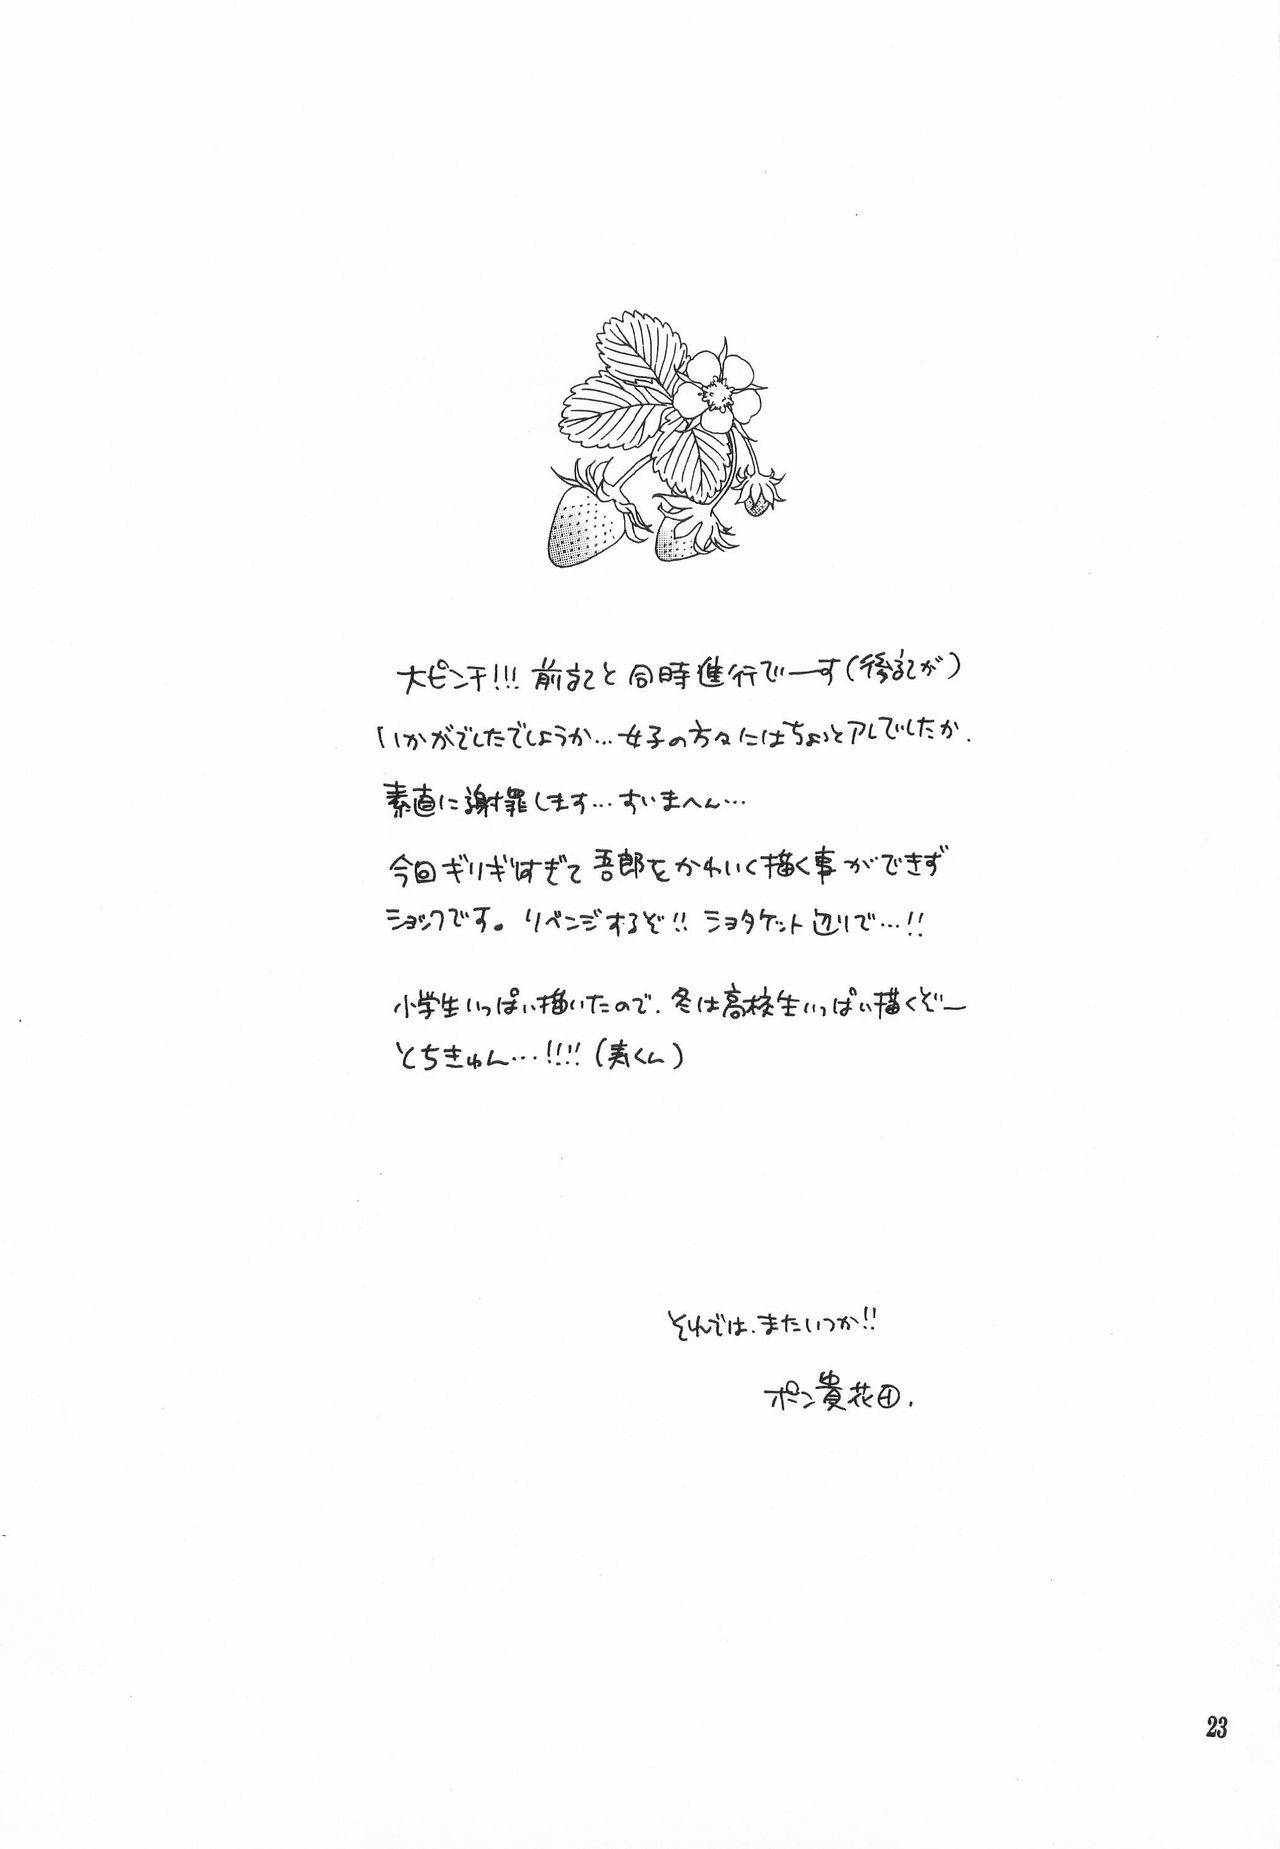 大ピンチ!!! 前記と同時進行でーす(後記が)
いかがでしたでしょうか…女子の方々にはちょっとアレでしたか.
素直に謝罪します…すいまへん…
今回ギリギリすぎて吾郎をかわいく描く事ができず
ショックです。リベンジするぞ!! ショタケット辺りで…!!
小学生いっぱい描いたので、冬は高校生いっぱい描くぞー
としちきゅん…!!!! (寿くん)
それでは、またいつか!!
ポン貴花田.
23